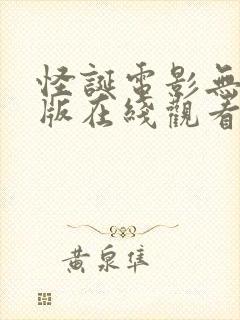 怪誕電影無
版在綫觀看
黃泉隼